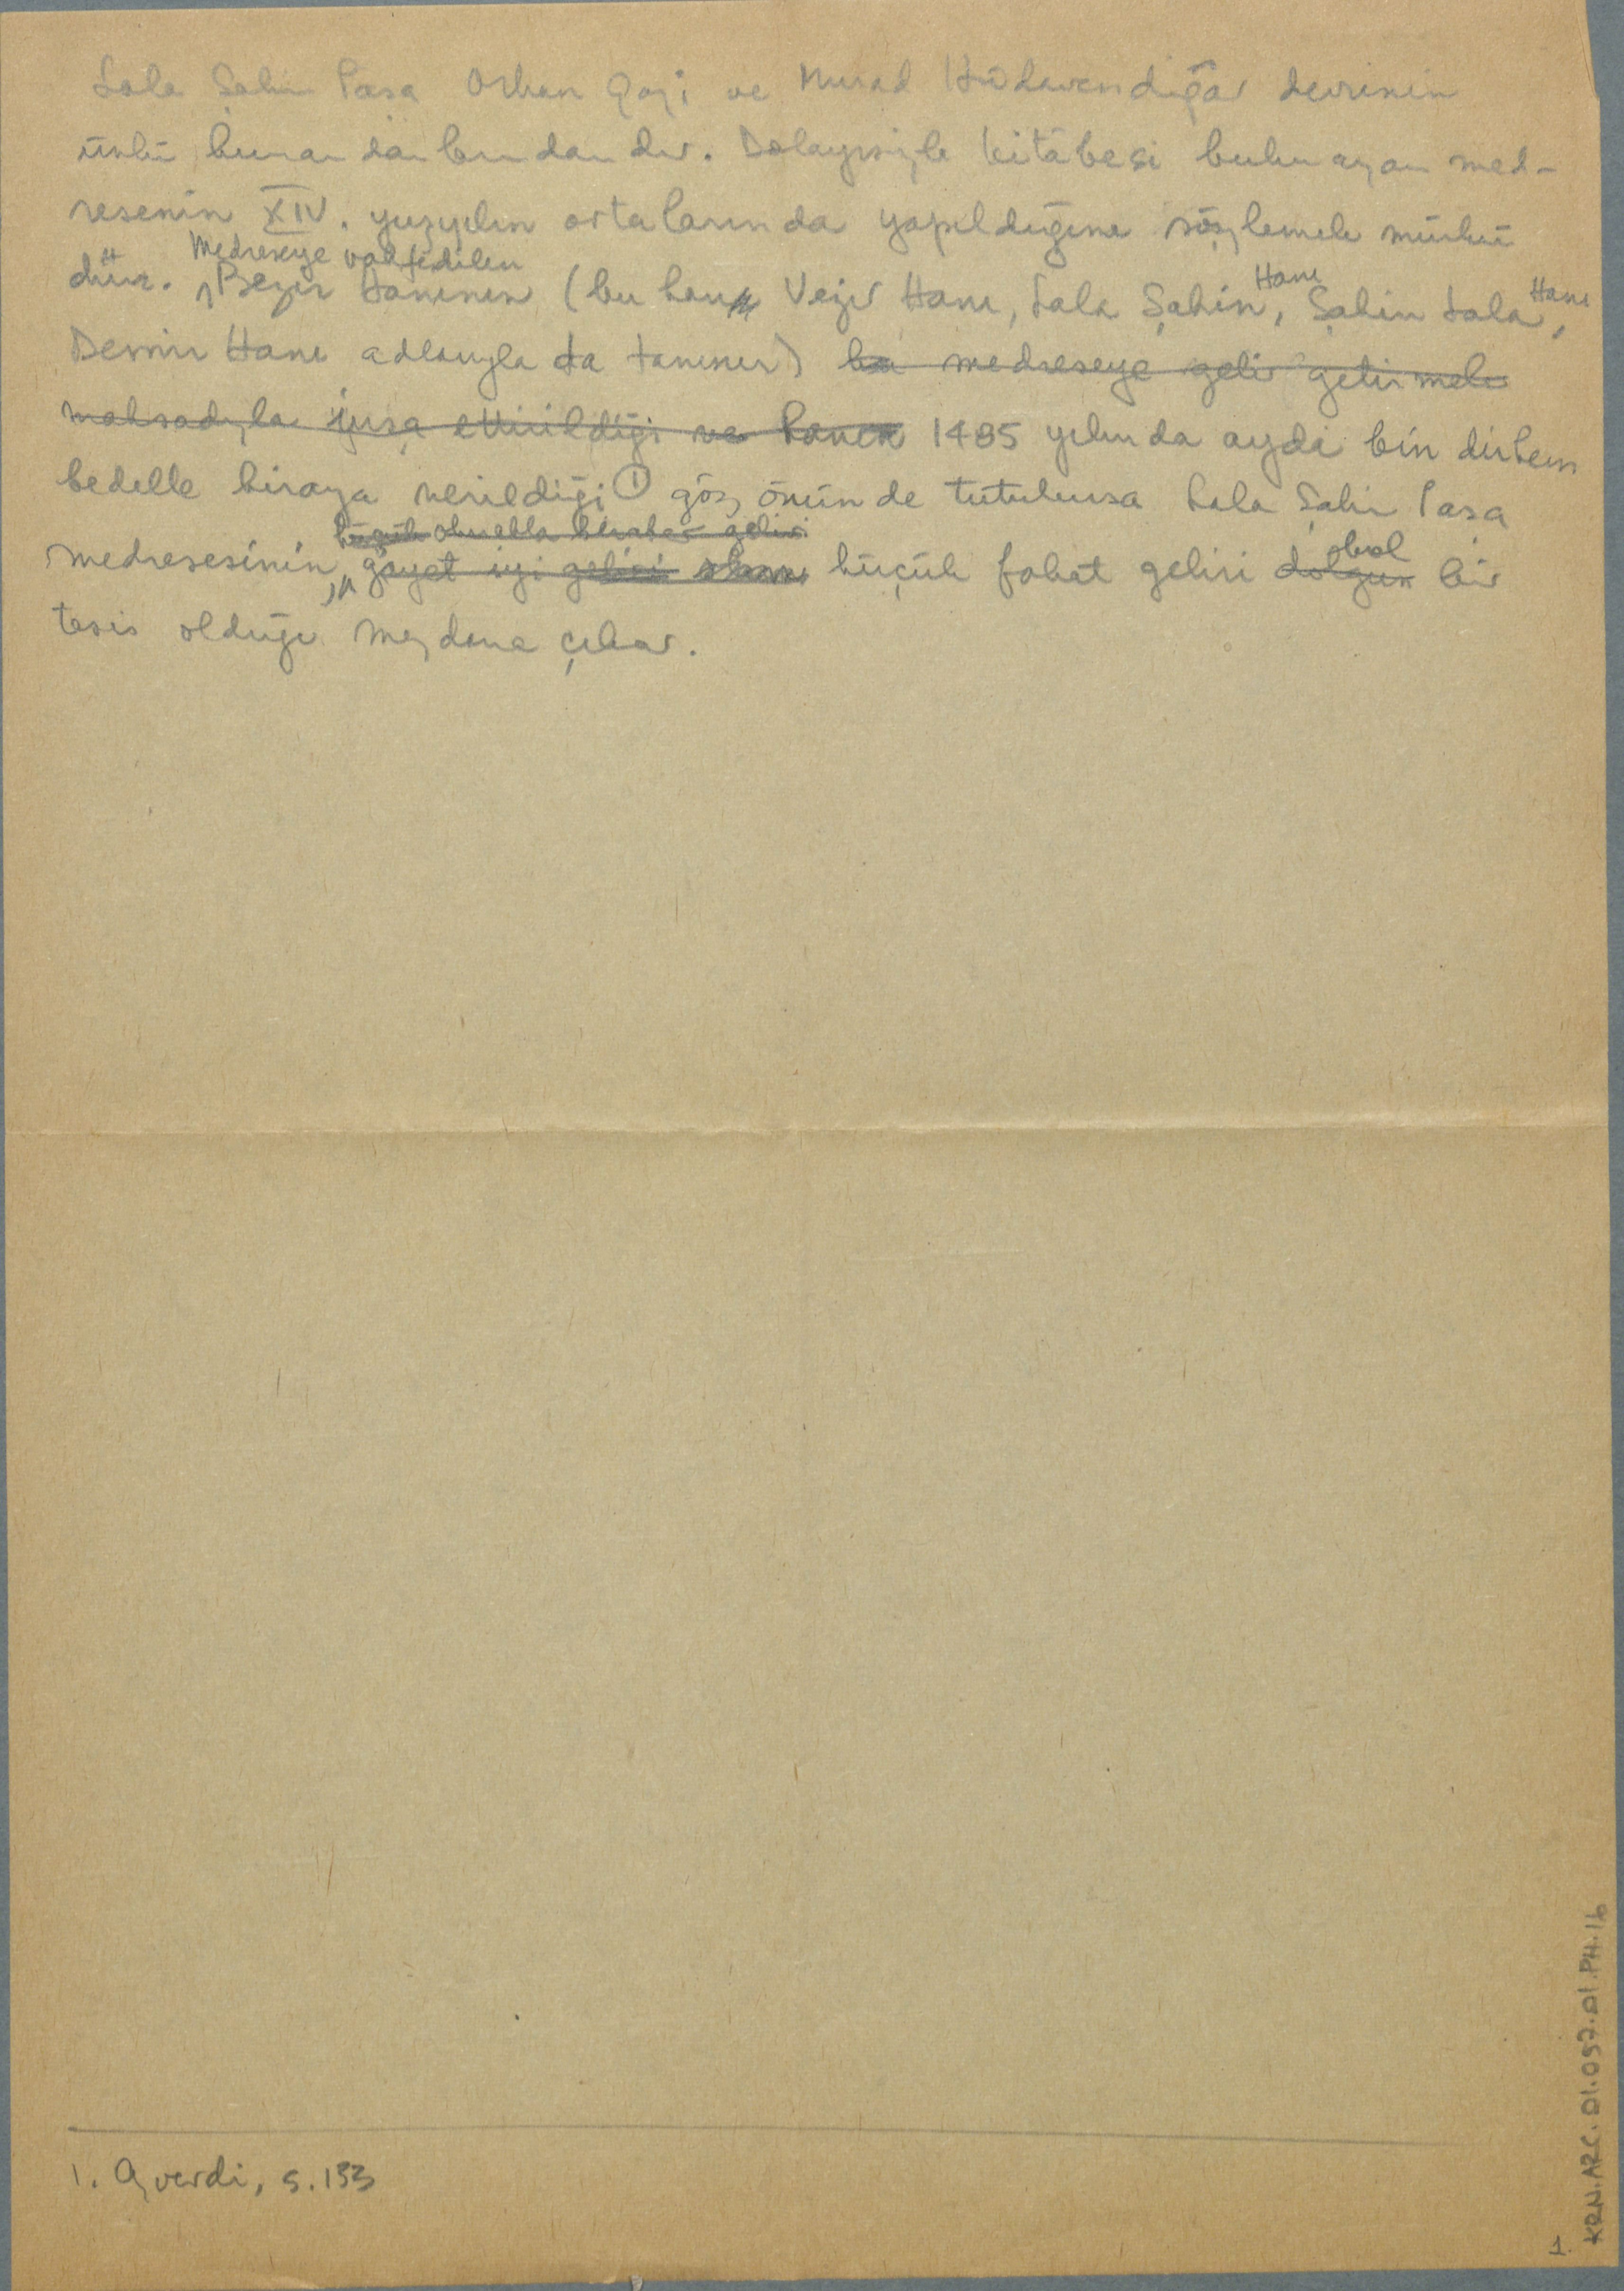 Lala Şahin Paşa Orhan Gazi ve Murad Hüdavendigâr devrinin
ünlü kumandanlarındandır. Dolayısıyle kitâbesi bulunmayan med-
resenin XIV. yüzyılın ortalarında yapıldığını söylemek mümkün
dür. Medreseye vakfedilen Bezir Hanının (bu han Vezir Hanı, Lala Şahin Hanı, Şahin Lala Hanı,
Demir Hanı adlarıyla da tanınır) bu medreseye gelir getirmek
maksadıyla inşa ettirildiği ve hanın 1485 yılında ayda bin dirhem
bedelle kiraya verildiği ① göz önünde tutulursa Lala Şahin Paşa
küçük olmakla beraber geliri
medresesinin gayet iyi geliri olan küçük fakat geliri dolgun bol bir
tesis olduğu meydana çıkar.
1. Ayverdi, s. 133
1.
KRN.ARC.01.057.01.PH.16